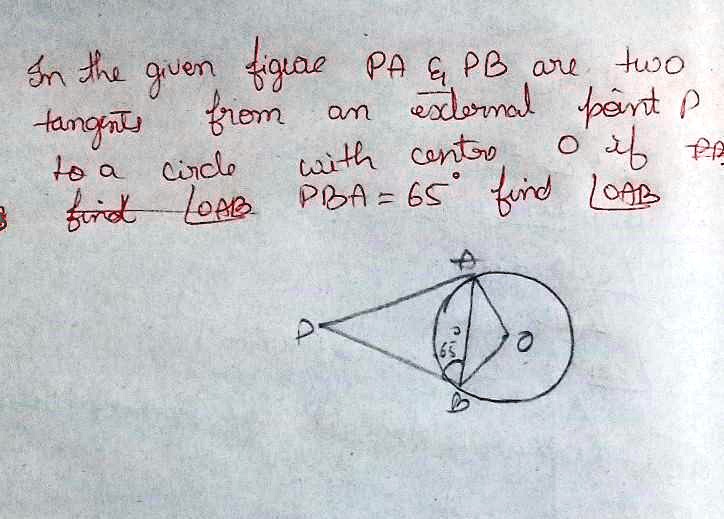 In the given figure PA & PB are two
tangents from an external point P
to a circle with centre O if PB
find ∠OAB PBA = 65° find ∠OAB
A
P
65°
O
B